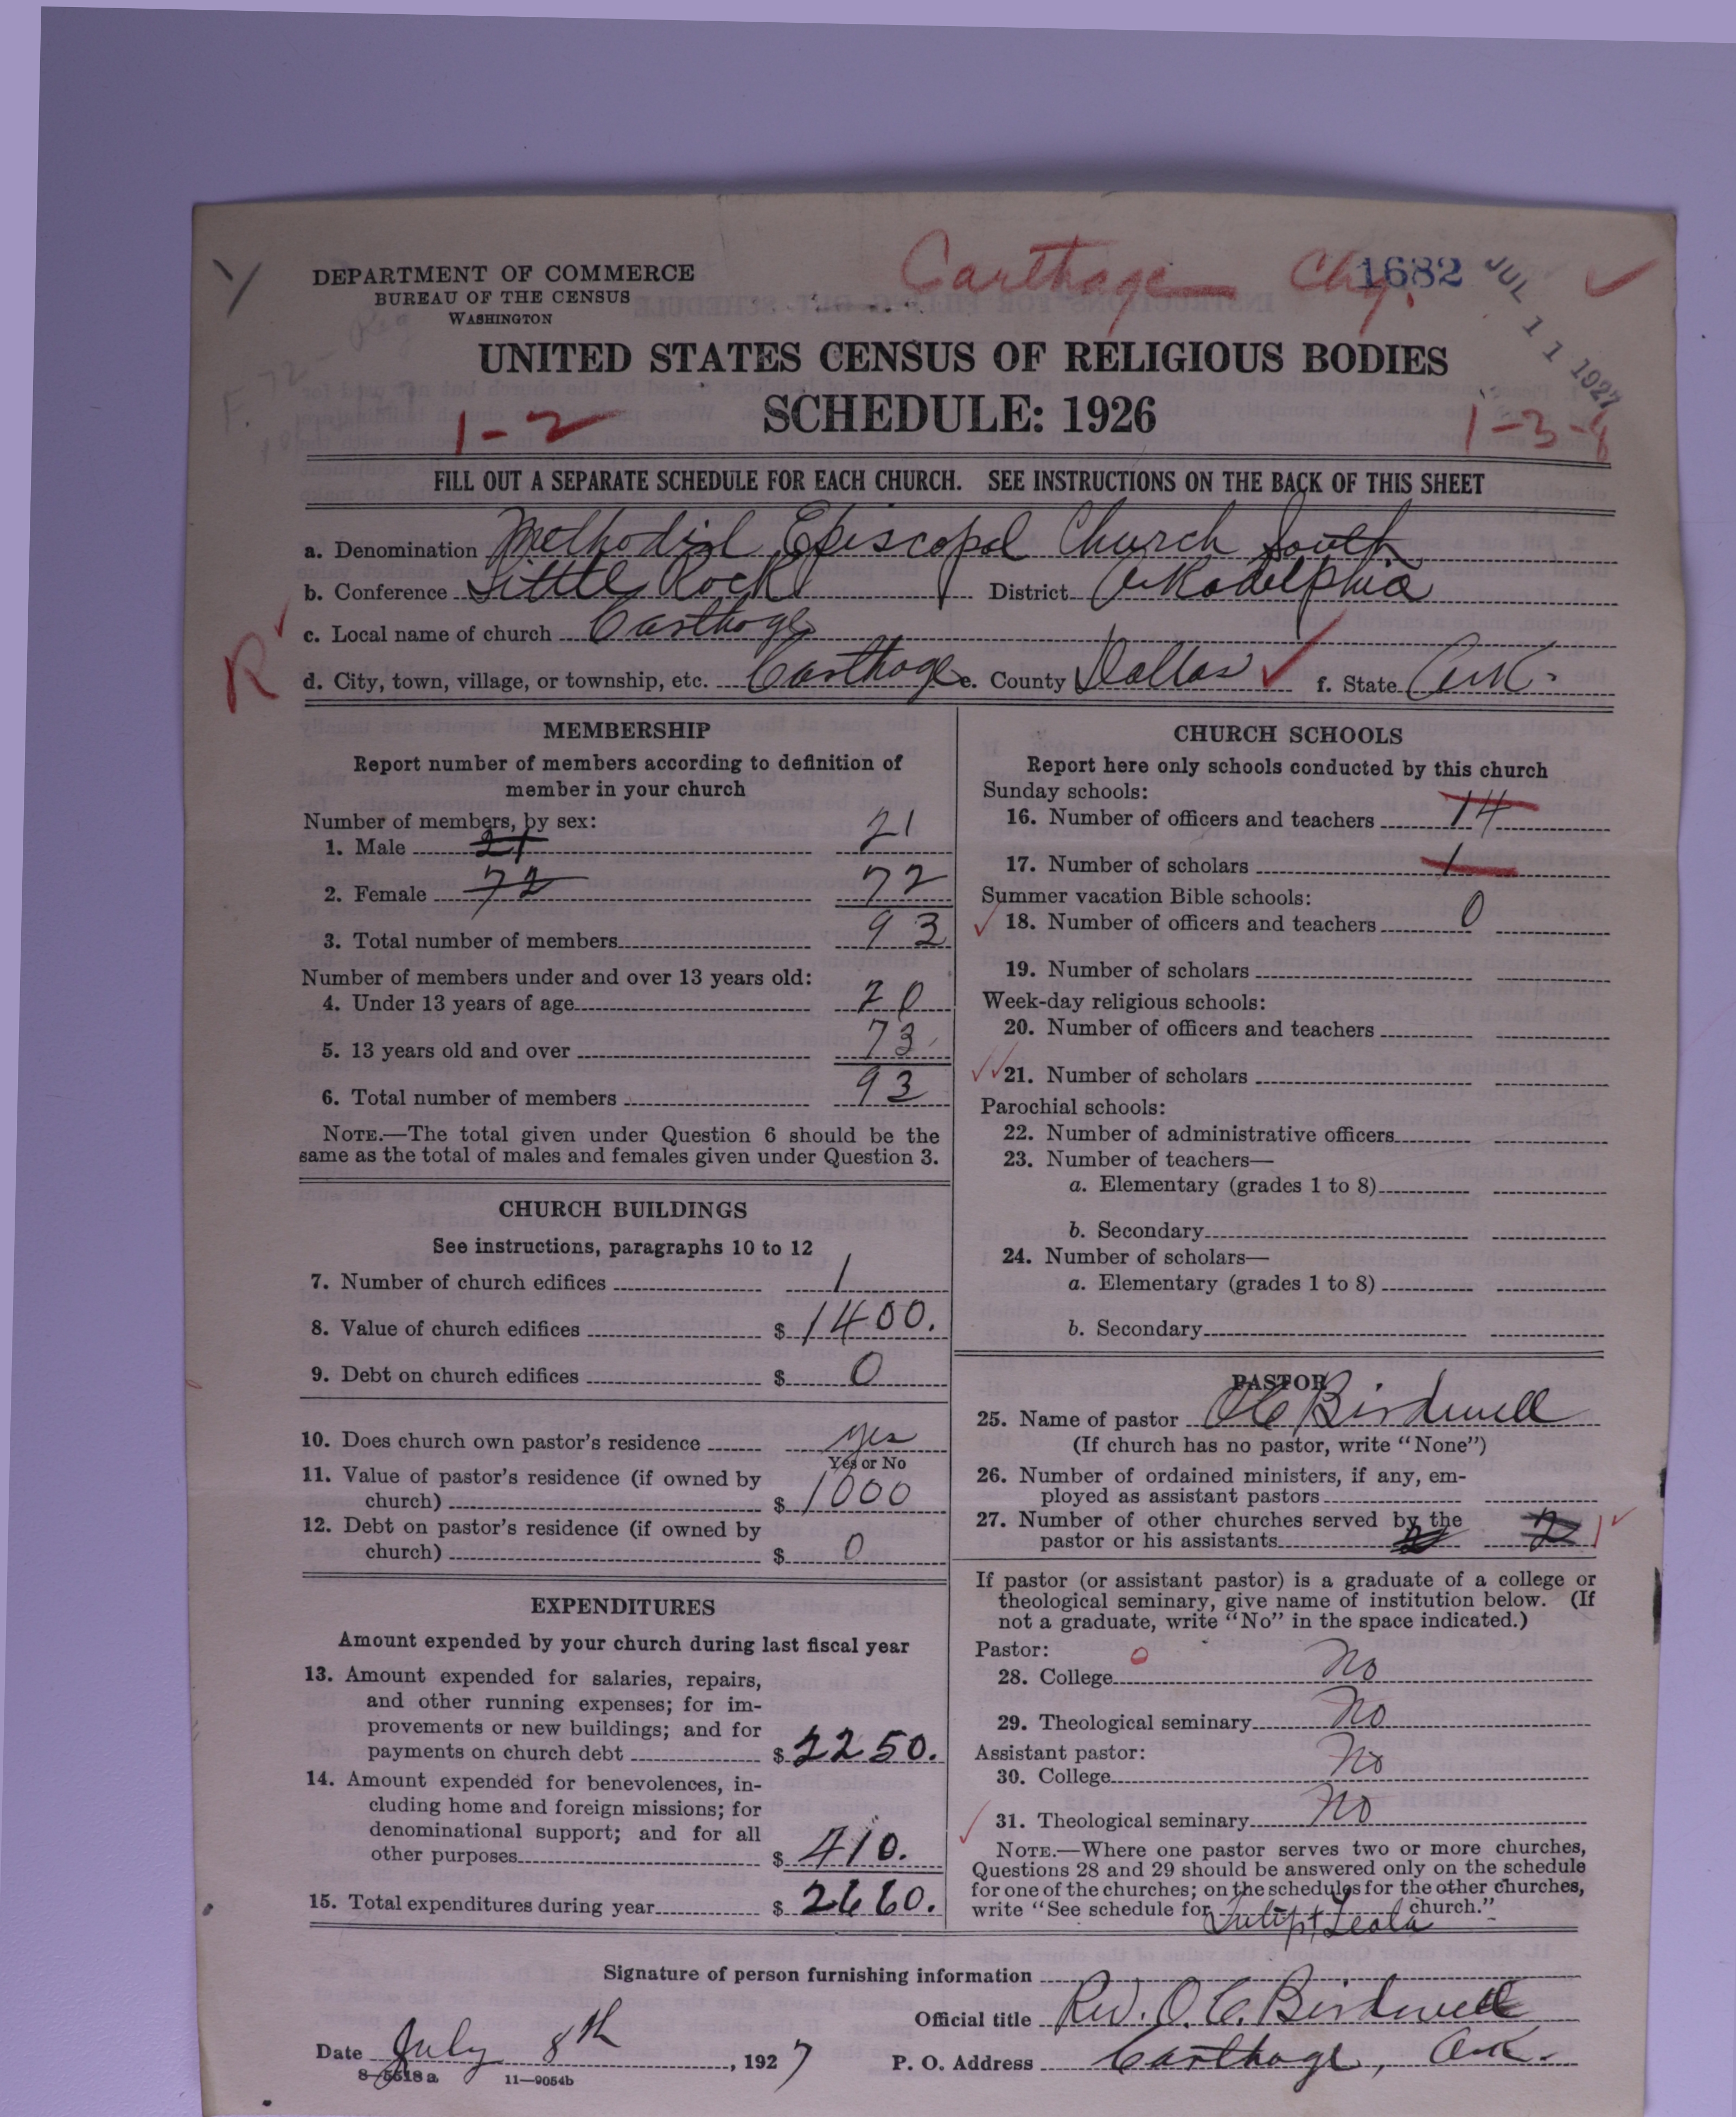 Carthage Chg. 1682 JUL 11 1927
DEPARTMENT OF COMMERCE
BUREAU OF THE CENSUS
WASHINGTON
UNITED STATES CENSUS OF RELIGIOUS BODIES
SCHEDULE: 1926
1-2
FILL OUT A SEPARATE SCHEDULE FOR EACH CHURCH. SEE INSTRUCTIONS ON THE BACK OF THIS SHEET
a. Denomination Methodist Episcopal Church South
b. Conference Little Rock District Arkadelphia
c. Local name of church Carthage
R
d. City, town, village, or township, etc. Carthage e. County Dallas f. State Ark.
MEMBERSHIP
Report number of members according to definition of
member in your church
Number of members, by sex:
1. Male 21 21
2. Female 72 72
3. Total number of members 93
Number of members under and over 13 years old:
4. Under 13 years of age 20
5. 13 years old and over 73
6. Total number of members 93
NOTE.—The total given under Question 6 should be the
same as the total of males and females given under Question 3.
CHURCH BUILDINGS
See instructions, paragraphs 10 to 12
7. Number of church edifices 1
8. Value of church edifices $ 1400.
9. Debt on church edifices $ 0
10. Does church own pastor's residence yes
Yes or No
11. Value of pastor's residence (if owned by
church) $ 1000
12. Debt on pastor's residence (if owned by
church) $ 0
EXPENDITURES
Amount expended by your church during last fiscal year
13. Amount expended for salaries, repairs,
and other running expenses; for im-
provements or new buildings; and for
payments on church debt $ 2250.
14. Amount expended for benevolences, in-
cluding home and foreign missions; for
denominational support; and for all
other purposes $ 410.
15. Total expenditures during year $ 2660.
CHURCH SCHOOLS
Report here only schools conducted by this church
Sunday schools:
16. Number of officers and teachers 14
17. Number of scholars 1
Summer vacation Bible schools:
18. Number of officers and teachers 0
19. Number of scholars
Week-day religious schools:
20. Number of officers and teachers
21. Number of scholars
Parochial schools:
22. Number of administrative officers
23. Number of teachers—
a. Elementary (grades 1 to 8)
b. Secondary
24. Number of scholars—
a. Elementary (grades 1 to 8)
b. Secondary
PASTOR
25. Name of pastor O C Birdwell
(If church has no pastor, write "None")
26. Number of ordained ministers, if any, em-
ployed as assistant pastors
27. Number of other churches served by the
pastor or his assistants 2 2
If pastor (or assistant pastor) is a graduate of a college or
theological seminary, give name of institution below. (If
not a graduate, write "No" in the space indicated.)
Pastor:
28. College 0 No
29. Theological seminary No
Assistant pastor:
30. College No
31. Theological seminary No
NOTE.—Where one pastor serves two or more churches,
Questions 28 and 29 should be answered only on the schedule
for one of the churches; on the schedules for the other churches,
write "See schedule for Tulip & Leola church."
Signature of person furnishing information
Official title Rev. O. C. Birdwell
Date July 8th, 1927 P. O. Address Carthage, Ark.
8-5518 a 11—9054b